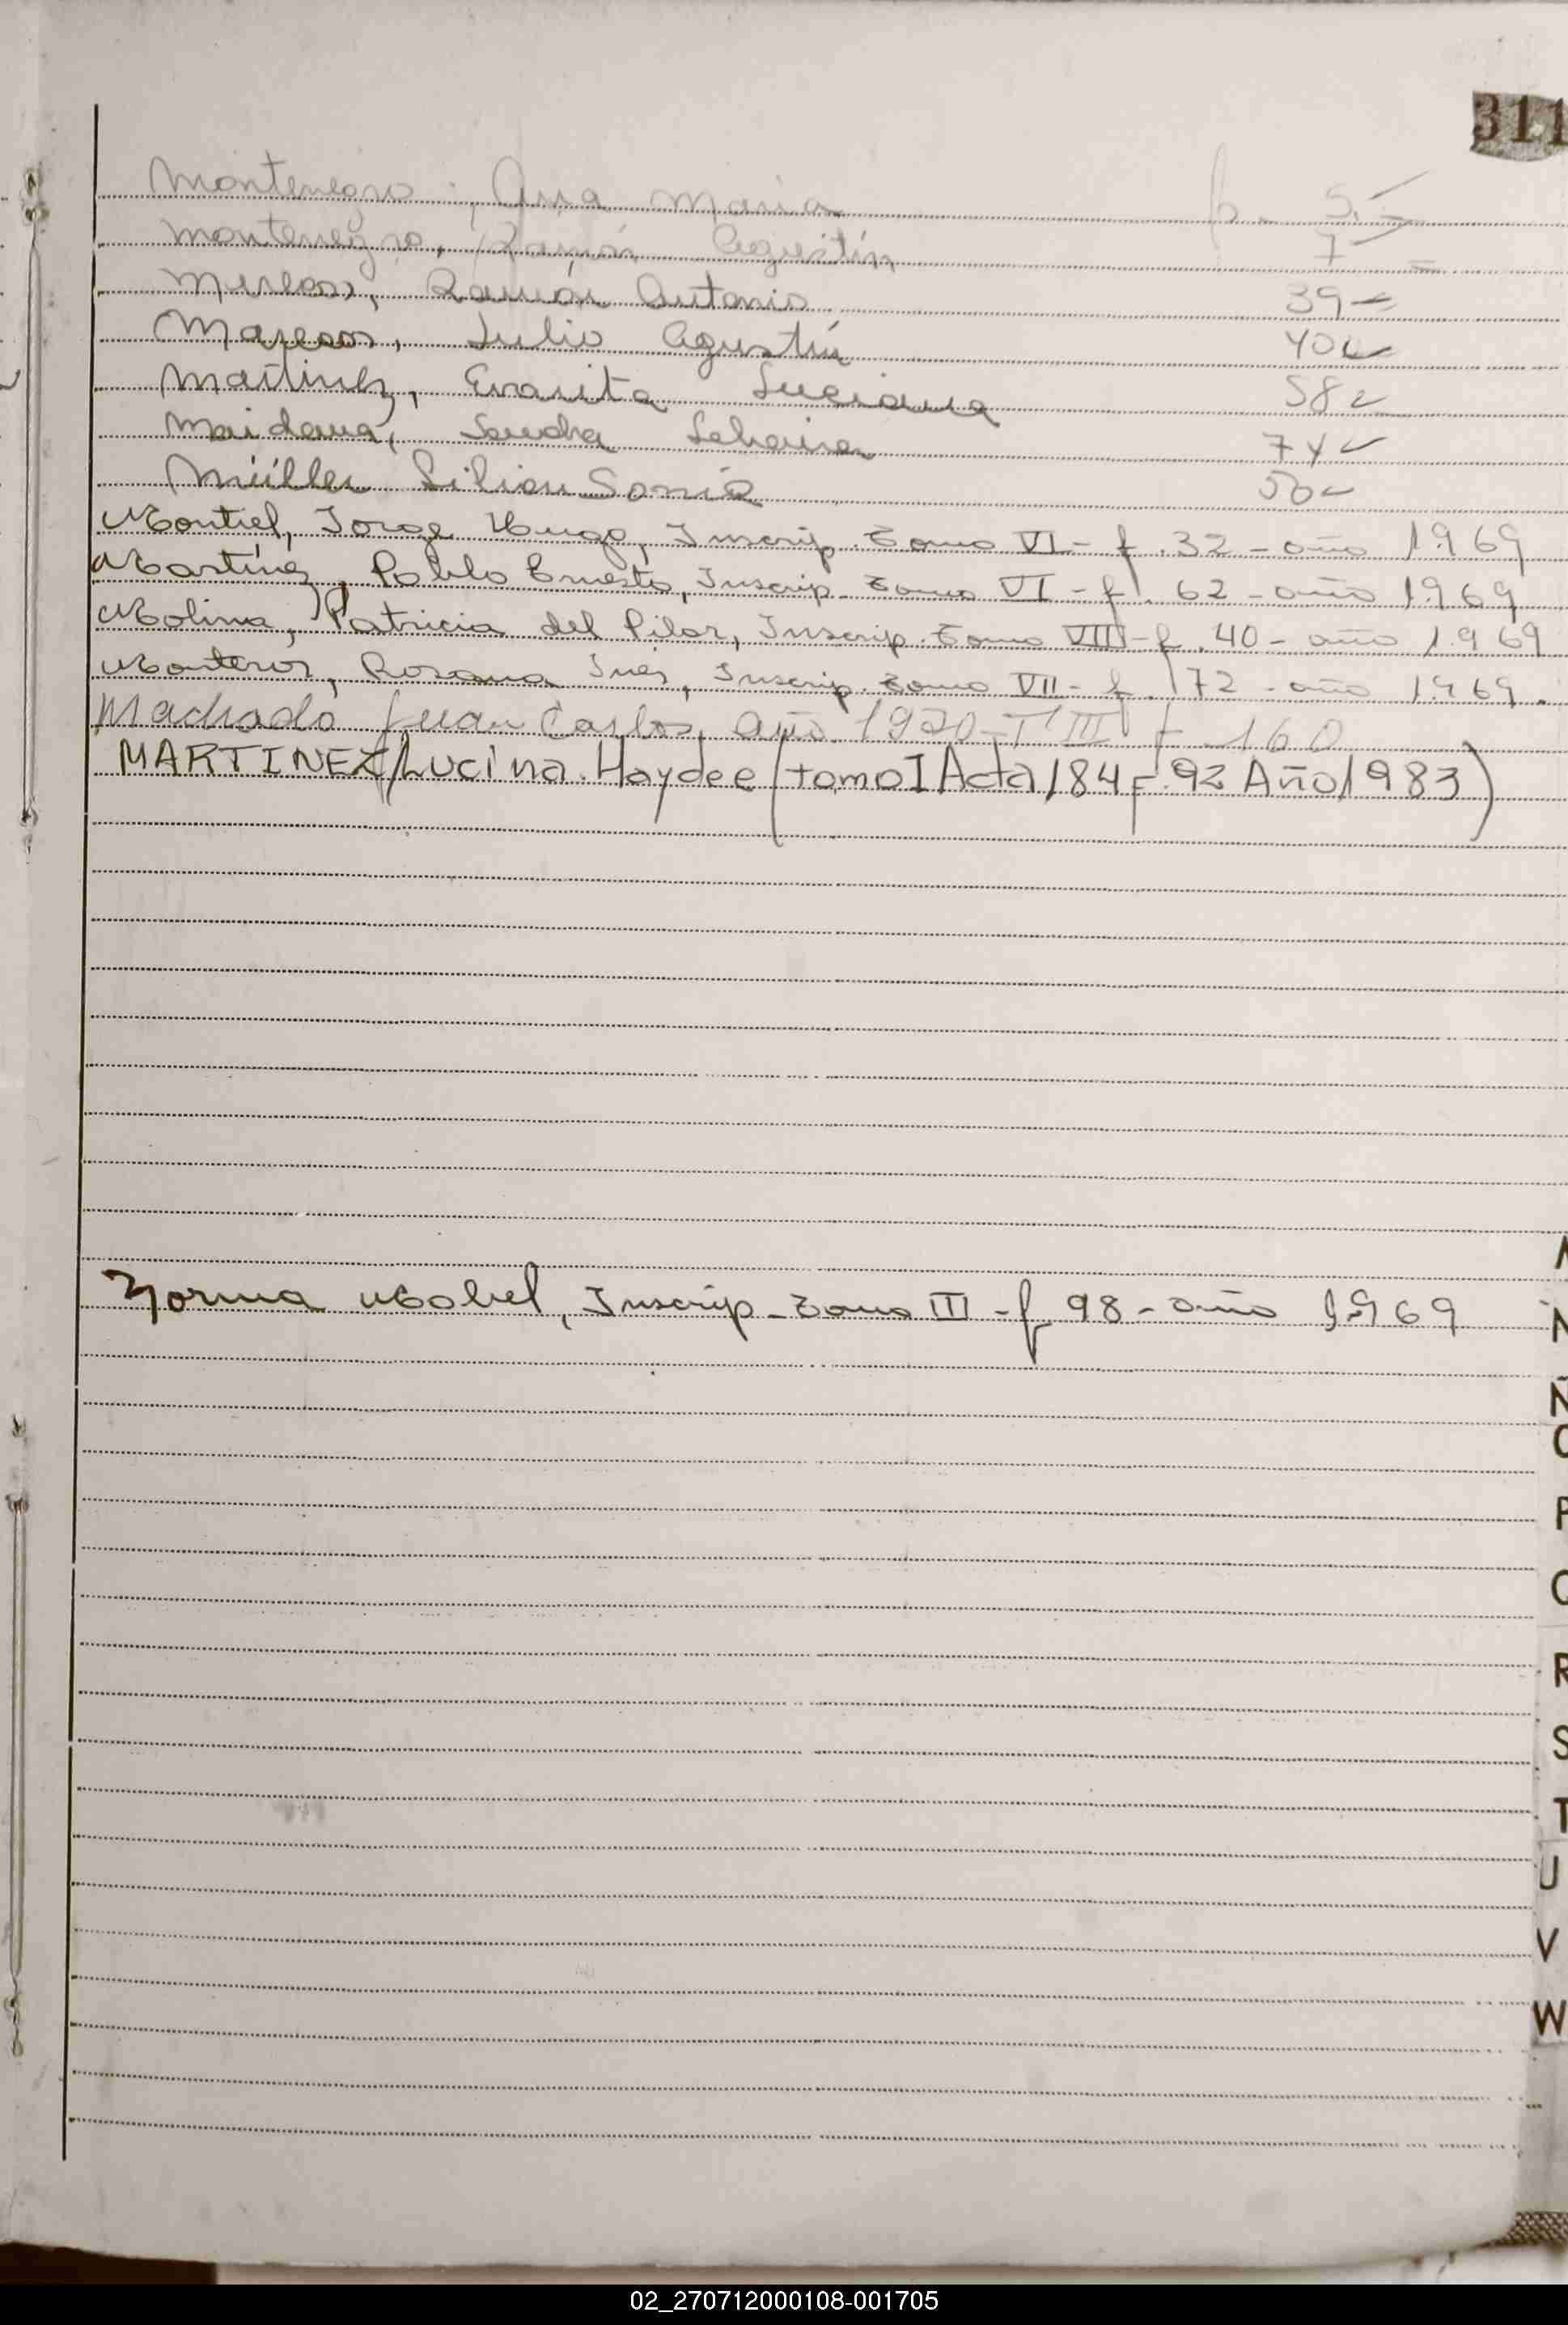 311
Montenegro, Ana Maria f. 5.-
Montenegro, Ramón Agustín 7 -
Mereos, Ramón Antonio 39
Mareos, Julio Agustín 40
Martinez, Evarita Luciana 58
Maidana, Sandra 74
Müller Lilian Sonia 50
Montiel, Jorge Hugo, Inscrip. Tomo VI - f. 32 - año 1969
Martínez, Pablo Ernesto, Inscrip. Tomo VI - f. 62 - año 1969
Molina, Patricia del Pilar, Inscrip. Tomo VIII - f. 40 - año 1969
Monteros, Rosana Ines, Inscrip. Tomo VII - f. 172 - año 1969.
Machado Juan Carlos, año 1970 - T III f 160
MARTINEZ/Lucina Haydee (tomo I Acta 184 F. 92 Año 1983)
Norma Mabel, Inscrip - Tomo III - f 98 - año 1969
N
Ñ
O
P
Q
R
S
T
U
V
W
02_270712000108-001705